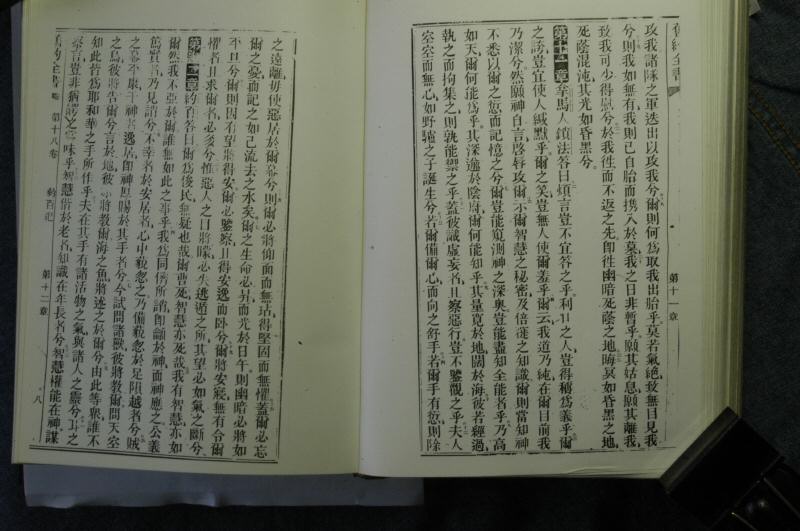 舊約全書
第十一章
攻我諸隊之軍迭出以攻我兮爾則何爲取我出胎乎莫若氣絕致無目見我
兮則我如無有我則已自胎而攜入於墓我之日非暫乎願其姑息願其離我
致我可少得慰兮於我往而不返之先卽往幽暗死蔭之地晦冥如昏黑之地
死蔭混沌其光如昏黑兮
第十一章拿馬人鎖法答曰煩言豈不宜答之乎利口之人豈得稱爲義乎爾
之誇豈宜使人緘默乎爾之笑豈無人使爾羞乎爾云我道乃純在爾目前我
乃潔兮然願神自言啓脣攻爾示爾智慧之秘密及倍蓰之知識則當知神
不悉以爾之愆而記憶之兮爾豈能窺測神之深奧豈能盡知全能者乎乃高
如天爾何能爲乎其深邃於陰府爾何能知乎其量寬於地闊於海彼若經過
執之而拘集之則孰能禦之乎蓋彼識虛妄者且察惡行豈不鑒觀之乎夫人
空空而無心如野驢之子誕生兮若爾備爾心而向之舒手若爾手有愆則除
之遠離毋使惡居於爾幕兮則爾必將仰面而無玷得堅固而無懼蓋爾必忘
爾之憂而記之如已流去之水矣爾之生命必昇而光於日午則幽暗必將如
平旦兮爾則因有望將得安爾必鑒察且得安逸而臥兮爾將安寢無有令爾
懼者且求爾者必多兮惟惡人之目將矇必失逃遁之所其望必如氣之斷兮
第十二章約百答曰爾爲俊民無疑也哉爾曹死智慧亦死哉我有智慧亦如
爾然我不亞於爾誰無如此之事乎我爲同儕所誚卽籲於神而神應之公義
篤實者乃見誚兮不幸者於安居者心中藐忽之乃備藐忽於足阻越者兮賊
之幕亦康干神者逸居卽神果賜於其手者兮今試問諸獸彼將敎爾問天空
之鳥彼將告爾兮言於地彼亦將敎爾海之魚將述之於爾兮由此等衆誰不
知此皆爲耶和華之手所作乎夫在其手有諸活物之氣與諸人之靈兮耳之
察言豈非猶腭之嘗味乎智慧偕於老者知識在年長者兮智慧權能在神謀
舊約全書 第十八卷 約百記 第十二章 八